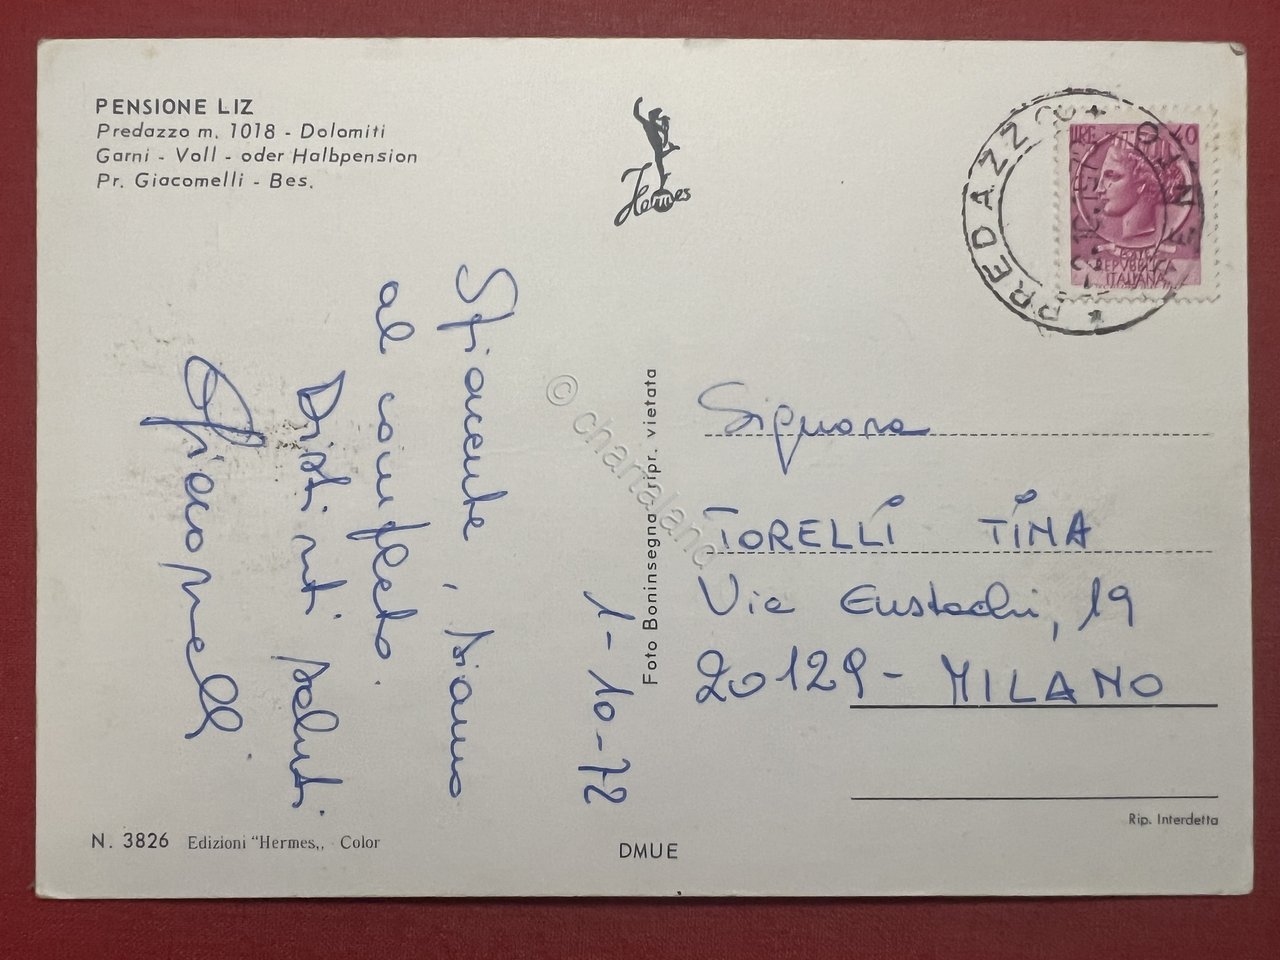 PENSIONE LIZ
Predazzo m. 1018 - Dolomiti
Garni - Voll - oder Halbpension
Pr. Giacomelli - Bes.
Hermes
PREDAZZO
TRENTO
LIRE 40
POSTE
REPVBBLICA
ITALIANA
1-10-72
Spiacente, siamo
al completo.
Distinti saluti.
Giacomelli
Foto Boninsegna - ripr. vietata
© chartaland
Signora
TORELLI TINA
Via Eustachi, 19
20129 - MILANO
Rip. Interdetta
N. 3826 Edizioni "Hermes,, Color
DMUE